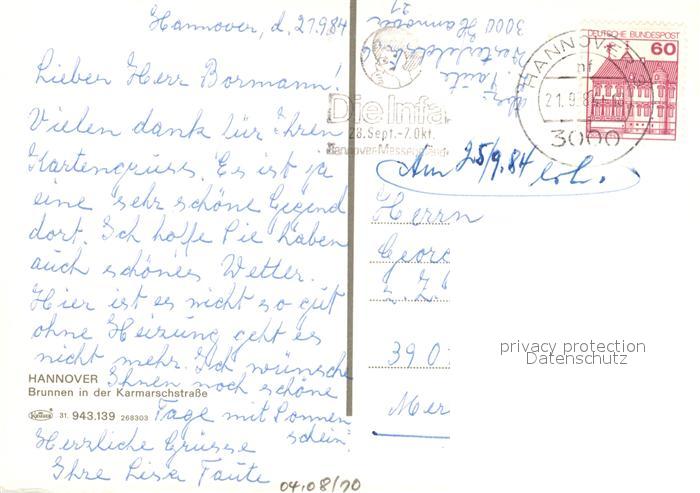 Hannover, d. 21.9.84
Lieber Herr Bormann!
Vielen dank für Ihren
Kartengruss. Es ist ja
eine sehr schöne Gegend
dort. Ich hoffe Sie haben
auch schönes Wetter.
Hier ist es nicht so gut
ohne Heizung geht es
nicht mehr. Ich wünsche
Ihnen noch schöne
Tage mit Sonnen
schein.
Herzliche Grüsse
Ihre Lisa Taute
HANNOVER
Brunnen in der Karmarschstraße
31. 943.139 268303
04.08/70
3000 Hannover
21
Die Infa
28. Sept.-7. Okt.
Hannover-Messegelände
DEUTSCHE BUNDESPOST
60
HANNOVER
21.9.84
3000
Am 25/9.84
Herrn
Georg
390
Mer
privacy protection
Datenschutz